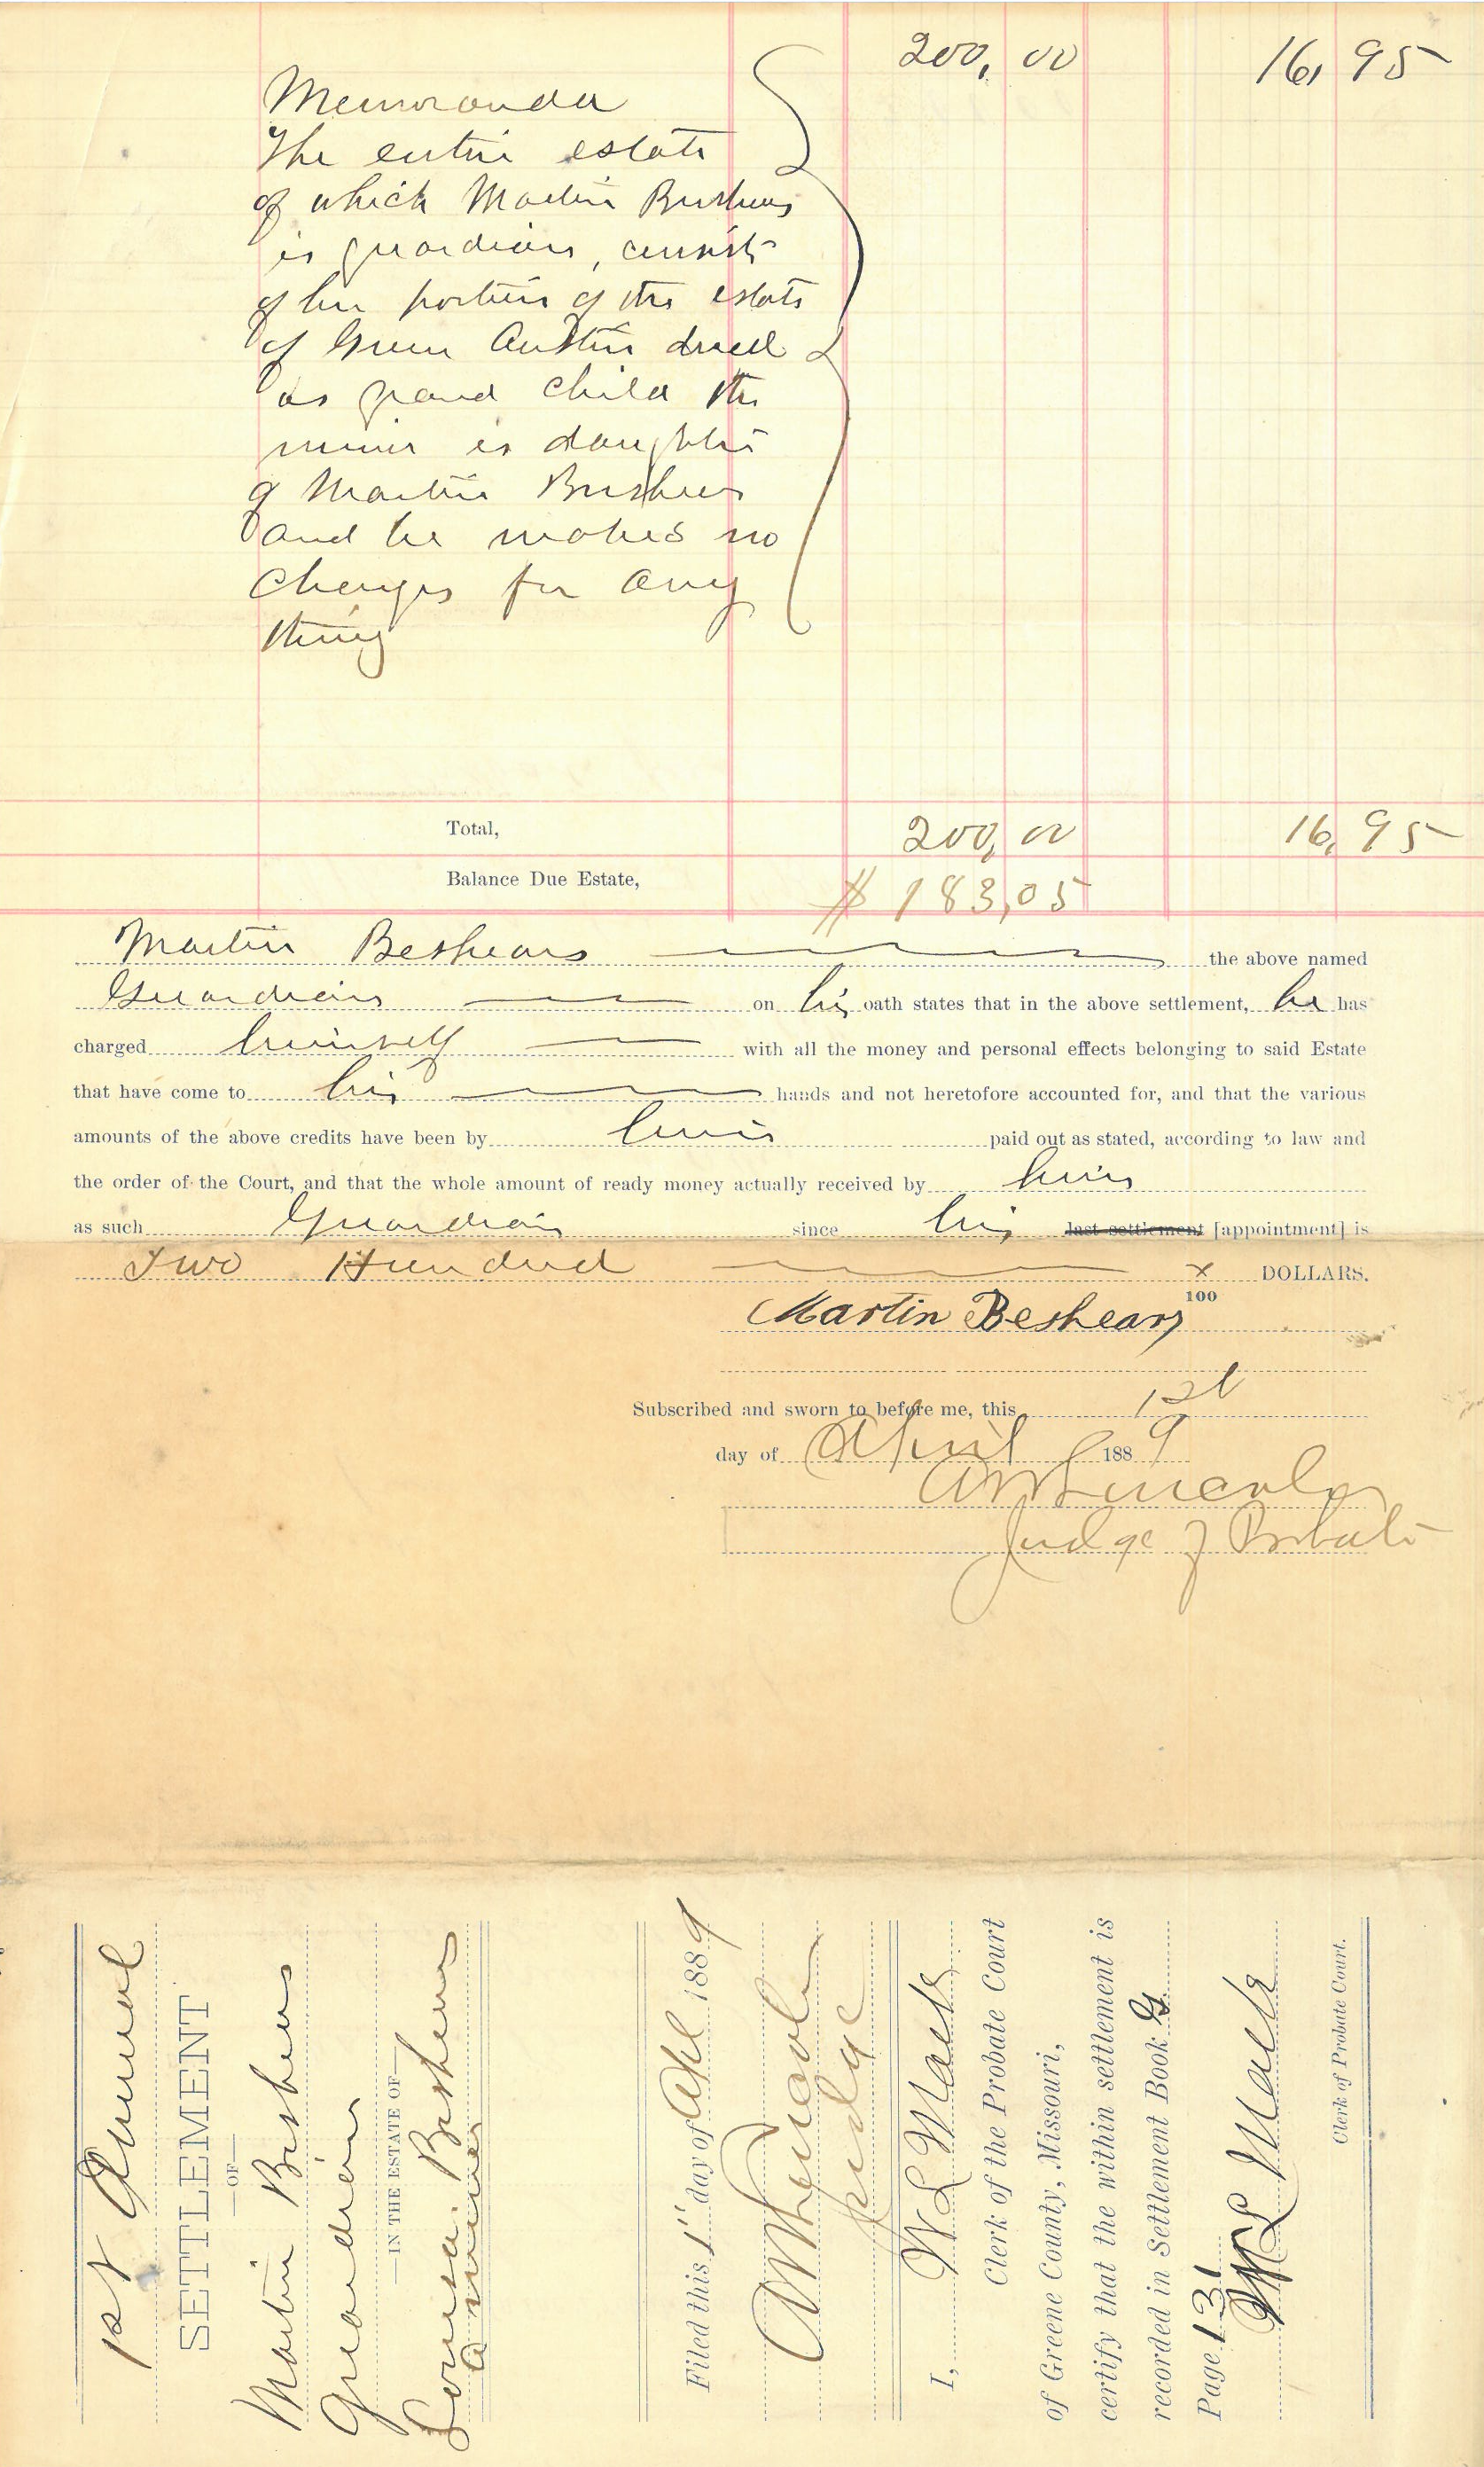 200, 00 16, 95
Memoranda
The entire estate
of which Martin Beshears
is guardian, consists
of her portion of the estate
of Green Austin decd
as grand child the
minor is daughter
of Martin Beshears
and he makes no
charges for any
thing
Total, 200, 00 16, 95
Balance Due Estate, $ 183,05
Martin Beshears the above named
Guardian on his oath states that in the above settlement, he has
charged himself with all the money and personal effects belonging to said Estate
that have come to his hands and not heretofore accounted for, and that the various
amounts of the above credits have been by him paid out as stated, according to law and
the order of the Court, and that the whole amount of ready money actually received by him
as such Guardian since his last settlement [appointment] is
Two Hundred x/100 DOLLARS.
Martin Beshears
Subscribed and sworn to before me, this 1st
day of April 1889
Lincoln
Judge of Probate
1st Annual
SETTLEMENT
—OF—
Martin Beshears
Guardian
—IN THE ESTATE OF—
Louisa Beshears
a minor
Filed this 1" day of Apl 1889
Lincoln
Judge
I, W L Mack
Clerk of the Probate Court
of Greene County, Missouri,
certify that the within settlement is
recorded in Settlement Book G
Page 131
W L Mack
Clerk of Probate Court.